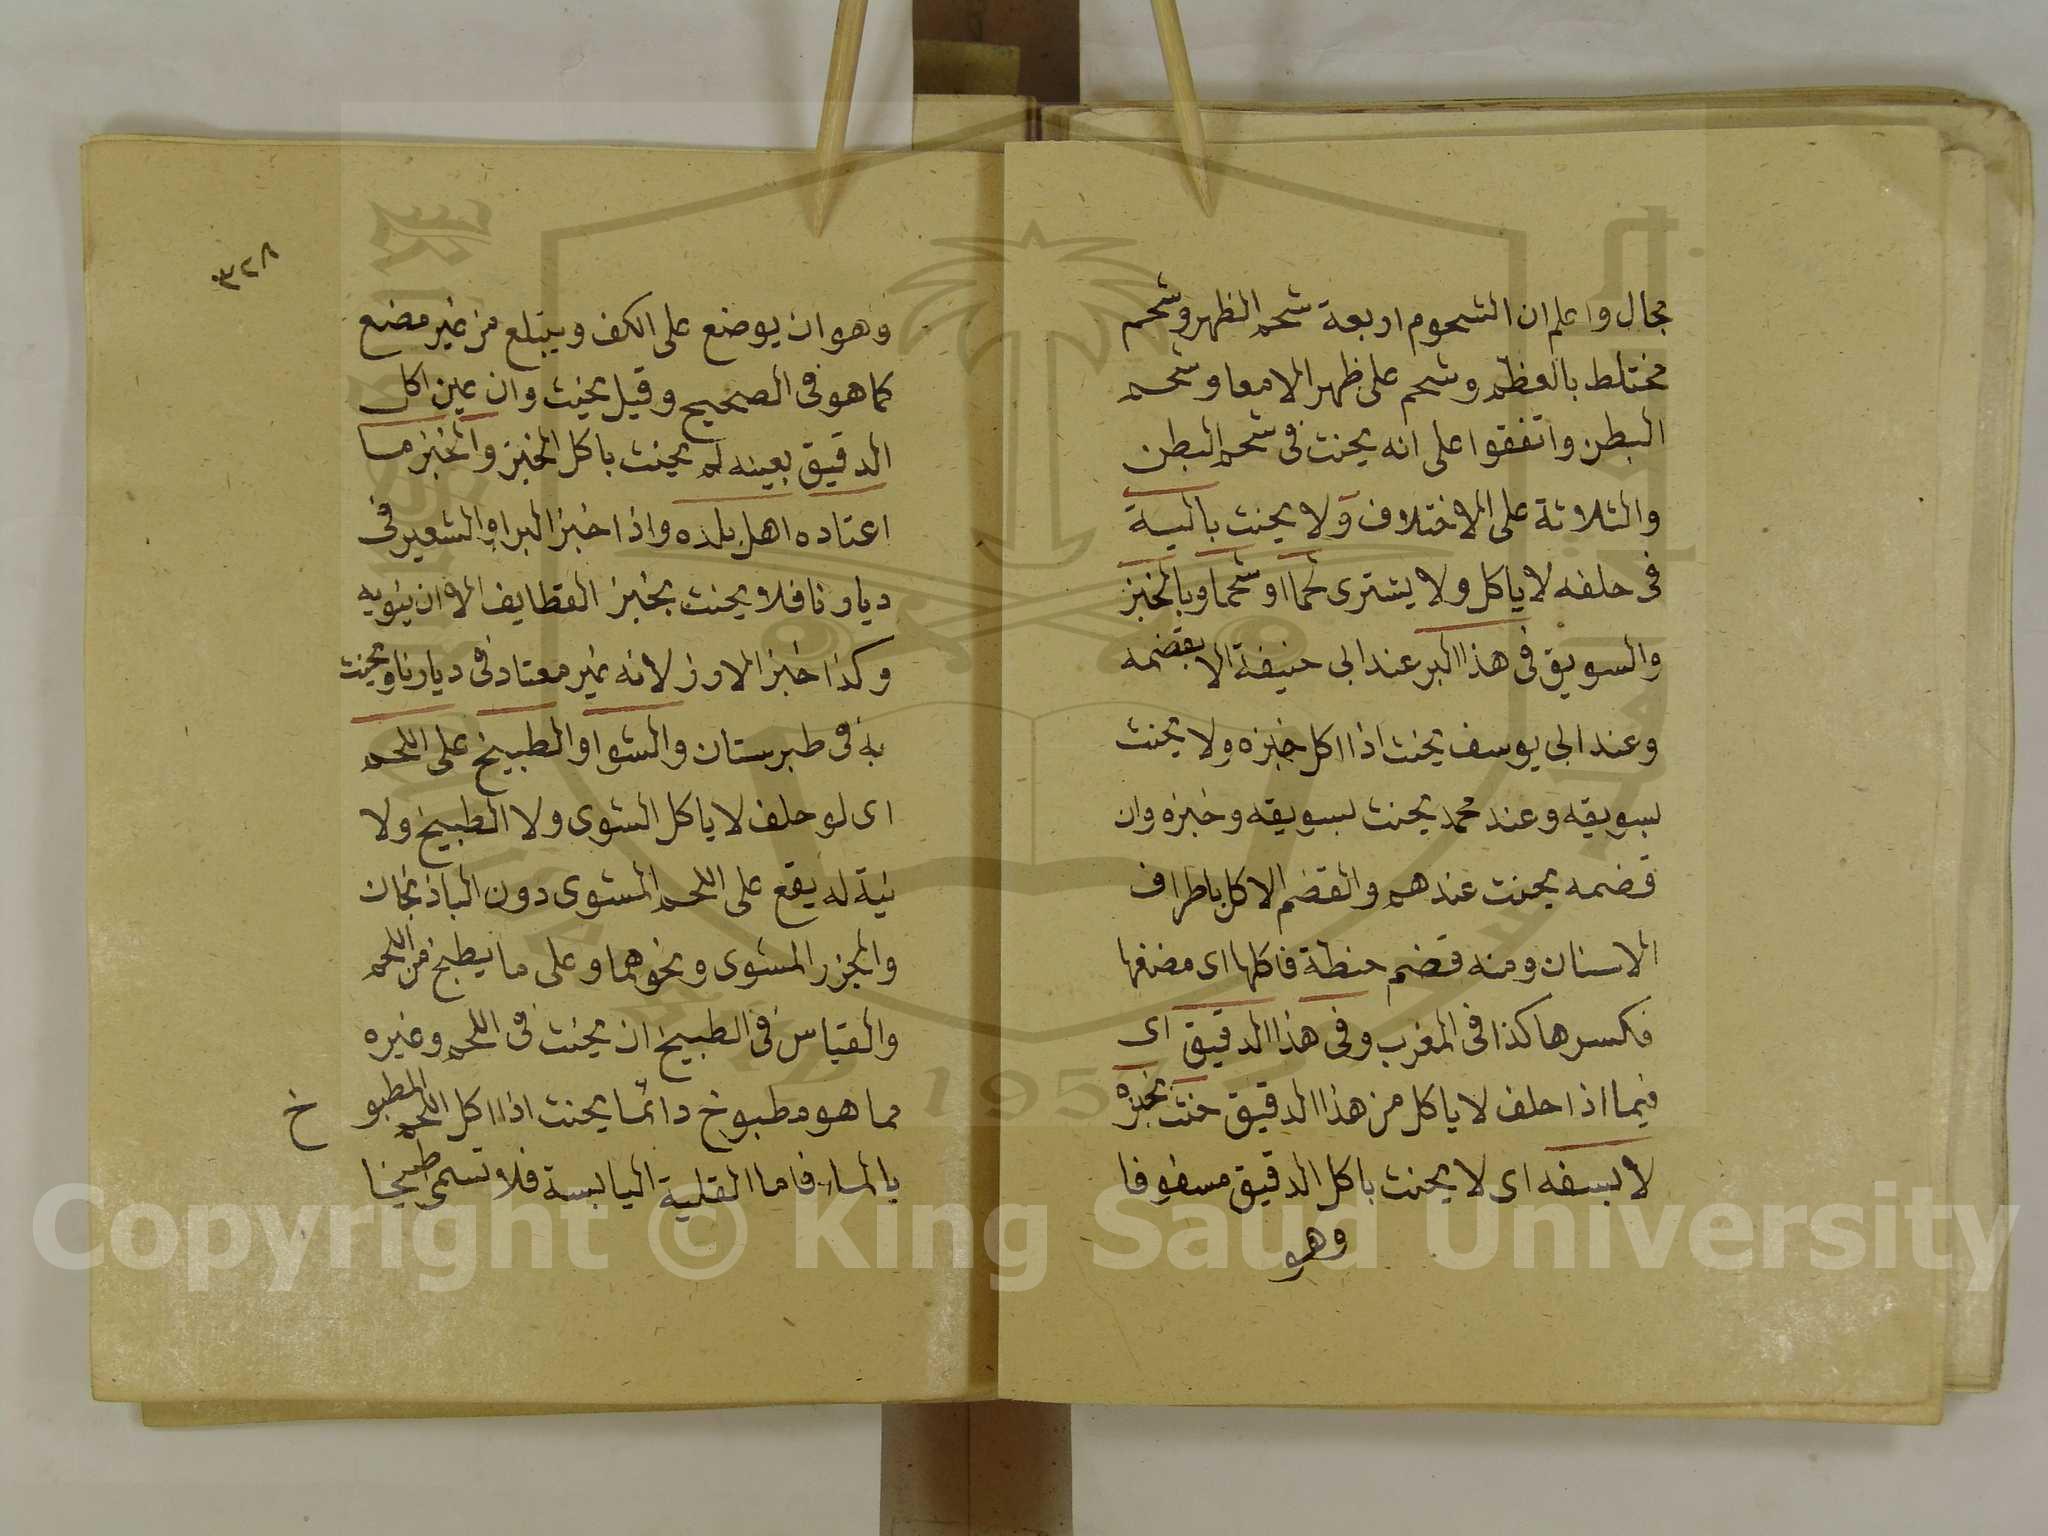 مجال واعلم ان الشحوم اربعة شحم الظهر وشحم
مختلط بالعظم وشحم على ظهر الامعا وشحم
البطن واتفقوا على انه يحنث فى شحم البطن
والثلاثة على الاختلاف ولا يحنث بالية
فى حلفه لا ياكل ولا يشترى لحما او شحما وبالخبز
والسويق فى هذا البر عند ابى حنيفة الا بقضمه
وعند ابى يوسف يحنث اذا اكل خبزه ولا يحنث
بسويقه وعند محمد يحنث بسويقه وخبزه وان
قضمه يحنث عندهم والقضم الاكل باطراف
الاسنان ومنه قضم حنطة فاكلها اى مضغها
فكسرها كذا فى المغرب وفى هذا الدقيق اى
فيما اذا حلف لا ياكل من هذا الدقيق حنث بخبزه
لا بسفه اى لا يحنث باكل الدقيق مسفوفا
وهو
٣٢٨
وهو ان يوضع على الكف ويبتلع من غير مضغ
كما هو فى الصحيح وقيل يحنث وان عين اكل
الدقيق بعينه لم يحنث باكل الخبز والخبز ما
اعتاده اهل بلده واذا خبز البر او الشعير فى
ديارنا فلا يحنث بخبز القطايف الا ان ينويه
وكذا خبز الارز لانه غير معتاد فى ديارنا ويحنث
به فى طبرستان والشوا والطبيخ على اللحم
اى لو حلف لا ياكل الشوى ولا الطبيخ ولا
نية له يقع على اللحم المشوى دون الباذنجان
والجزر المشوى ونحوهما وعلى ما يطبخ من اللحم
والقياس فى الطبيخ ان يحنث فى اللحم وغيره
مما هو مطبوخ دائما يحنث اذا اكل اللحم المطبو خ
بالماء فاما القلية اليابسة فلا تسمى طبيخا
Copyright © King Saud University
1957